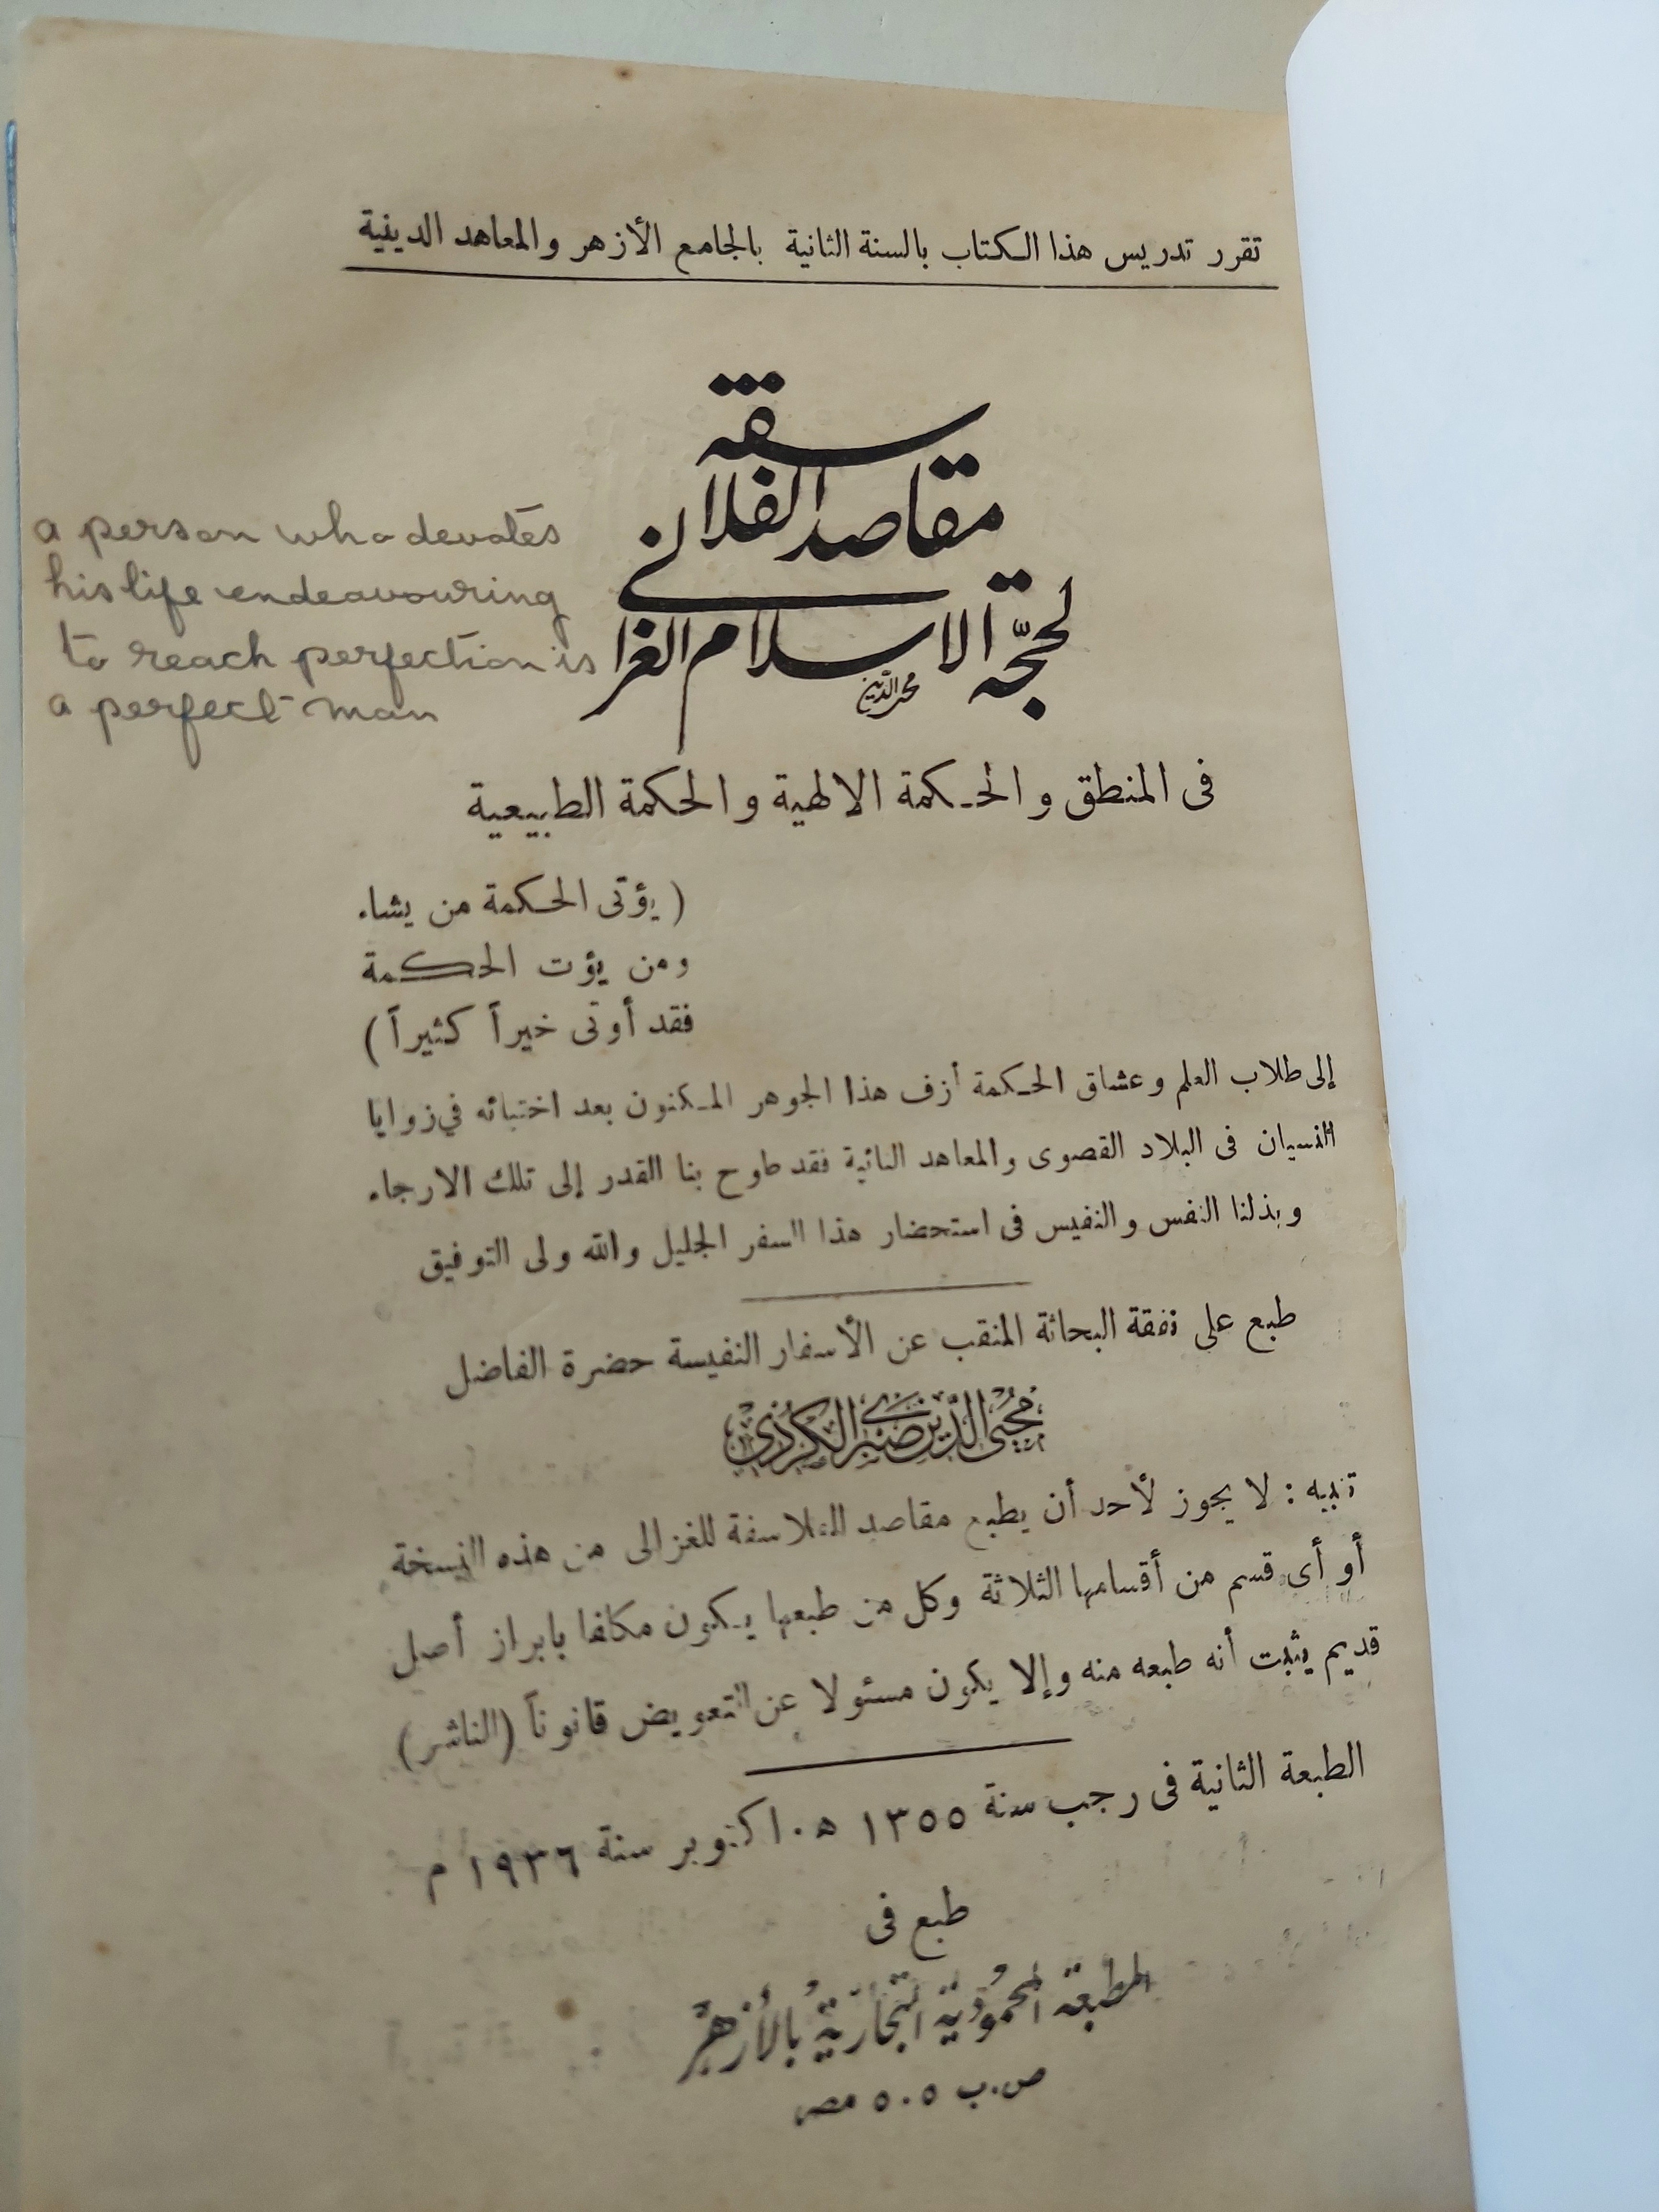 تقرر تدريس هذا الكتاب بالسنة الثانية بالجامع الأزهر والمعاهد الدينية
مقاصد الفلاسفة
لحجّة الاسلام الغزالي
محي الدين
a person who devotes
his life endeavouring
to reach perfection is
a perfect man
فى المنطق والحكمة الالهية والحكمة الطبيعية
( يؤتى الحكمة من يشاء
ومن يؤت الحكمة
فقد أوتى خيراً كثيراً )
إلى طلاب العلم وعشاق الحكمة أزف هذا الجوهر المكنون بعد اختبائه في زوايا
النسيان فى البلاد القصوى والمعاهد النائية فقد طوح بنا القدر إلى تلك الارجاء
وبذلنا النفس والنفيس فى استحضار هذا السفر الجليل والله ولى التوفيق
طبع على نفقة البحاثة المنقب عن الأسفار النفيسة حضرة الفاضل
مُحيى الدّين صَبرى الكُردى
تنبيه : لا يجوز لأحد أن يطبع مقاصد الفلاسفة للغزالى من هذه النسخة
أو أى قسم من أقسامها الثلاثة وكل من طبعها يكون مكلفا بابراز أصل
قديم يثبت أنه طبعه منه وإلا يكون مسئولا عن التعويض قانوناً (الناشر)
الطبعة الثانية فى رجب سنة ١٣٥٥ ه . اكتوبر سنة ١٩٣٦ م
طبع فى
المطبعة المحمُودية التجارية بالأزهر
ص.ب ٥٠٥ مصر